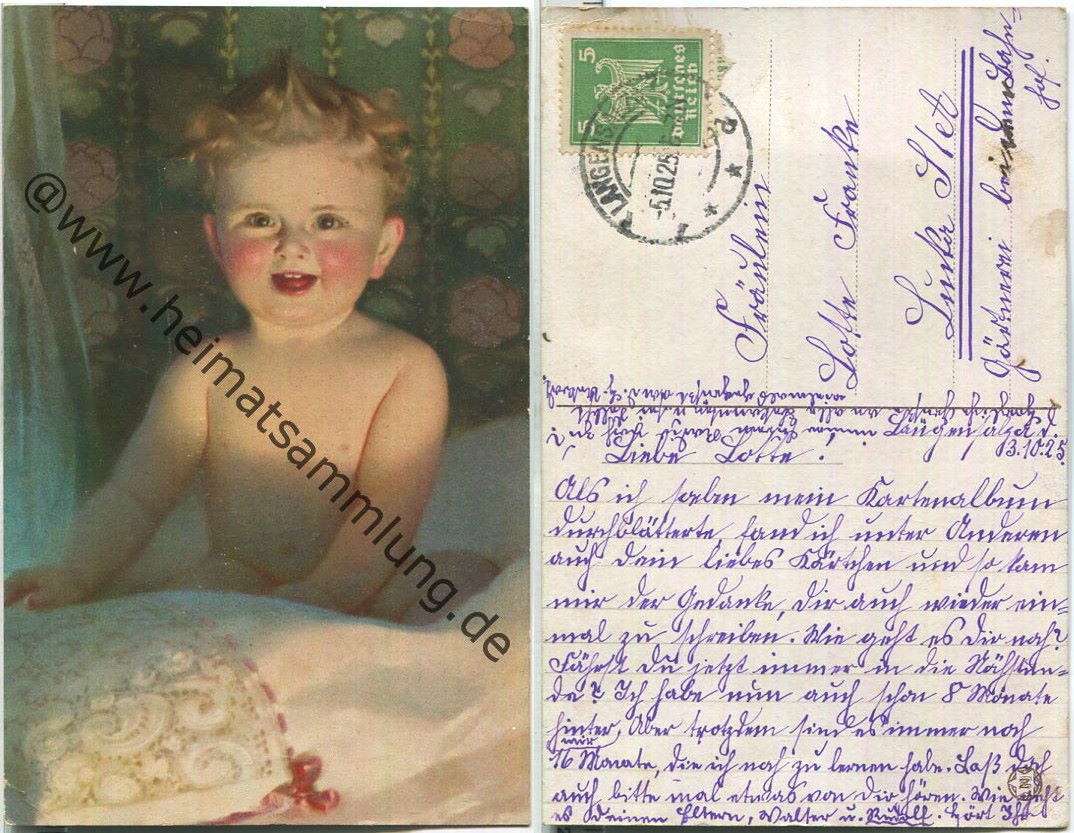 @www.heimatsammlung.de
5 5
Deutsches
Reich
5.10.25
Fräulein
Lotte Franke
Gärtnerei beim Bahn-
hof.
Langensalza d.
Liebe Lotte!
3.10.25
Als ich soeben mein Kartenalbum
durchblätterte, fand ich unter Anderen
auch dein liebes Kärtchen und so kam
mir der Gedanke, dir auch wieder ein-
mal zu schreiben. Wie geht es dir noch?
Fährst du jetzt immer in die Nähstun-
de? Ich habe nun auch schon 8 Monate
hinter mir, Aber trotzdem sind es immer noch
16 Monate, die ich noch zu lernen habe. Laß doch
auch bitte mal etwas von dir hören. Wie geht
es Deinen Eltern, Walter u. Rudolf. Hört Ihr